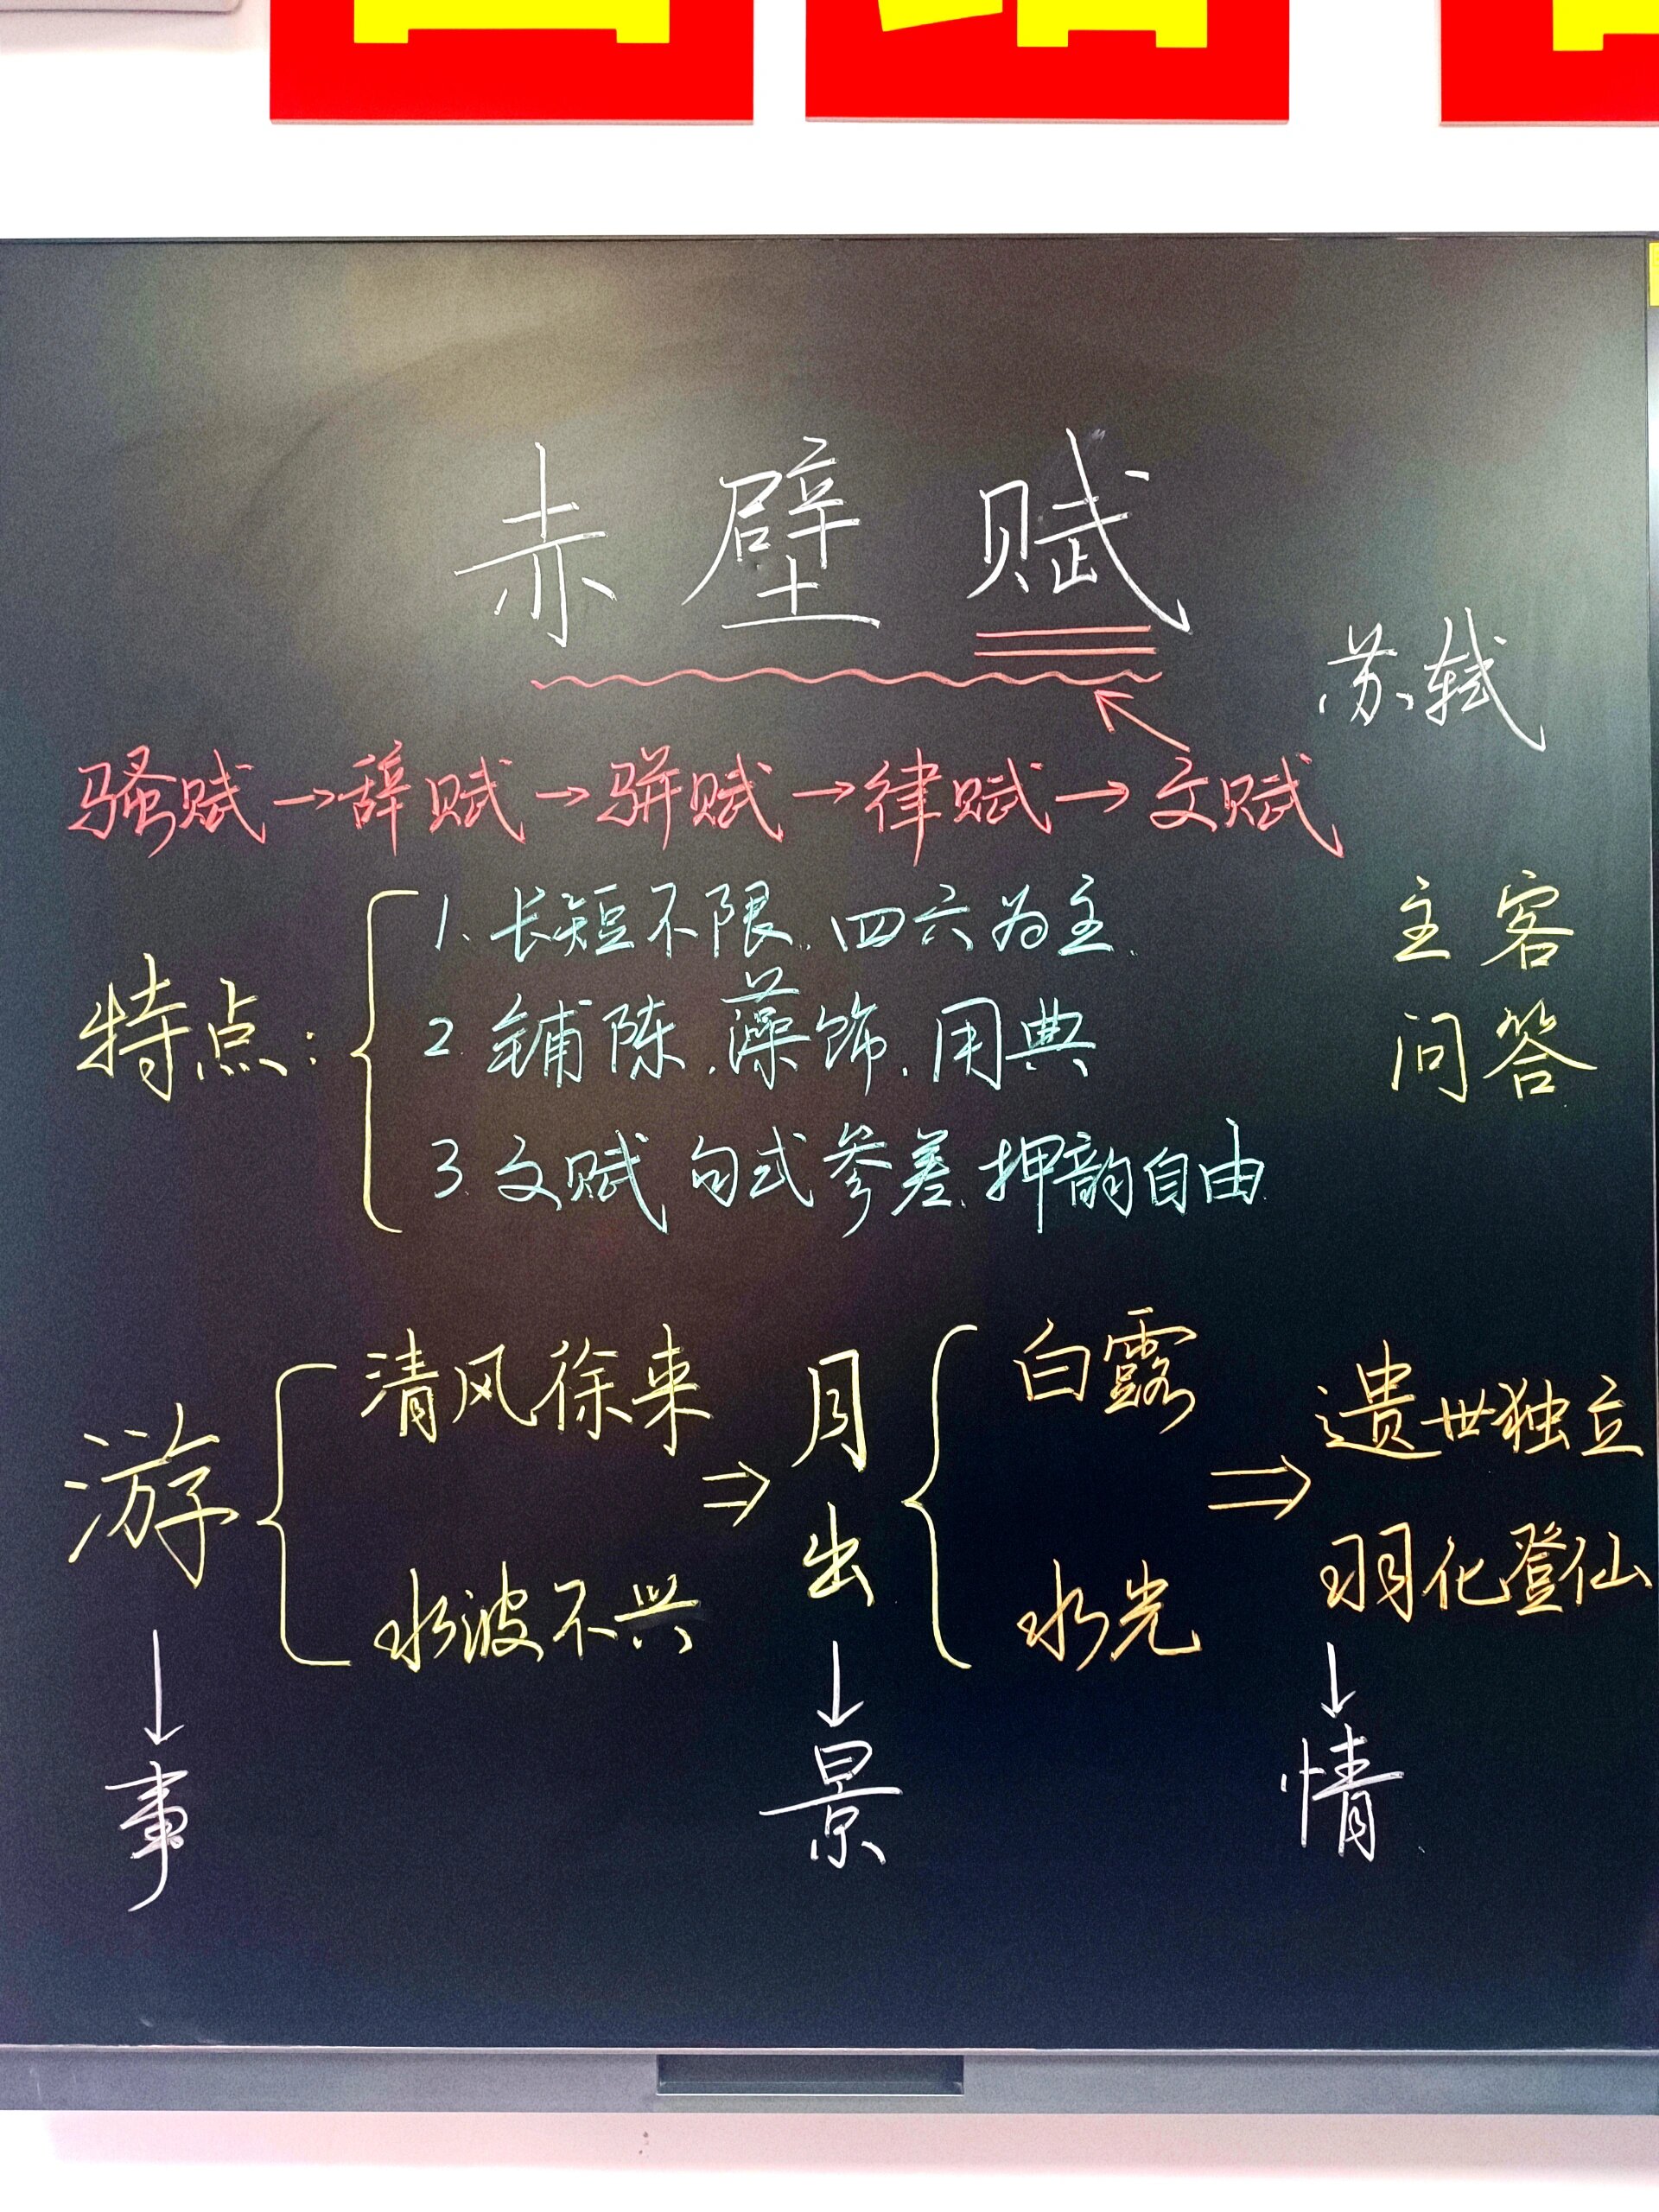 赤壁赋
苏轼
骚赋→辞赋→骈赋→律赋→文赋
特点：
1. 长短不限、四六为主.
2. 铺陈、藻饰、用典
3. 文赋 句式参差、押韵自由.
主客
问答
游
清风徐来
水波不兴
⇒
月出
白露
水光
⇒
遗世独立
羽化登仙
↓ ↓ ↓
事 景 情